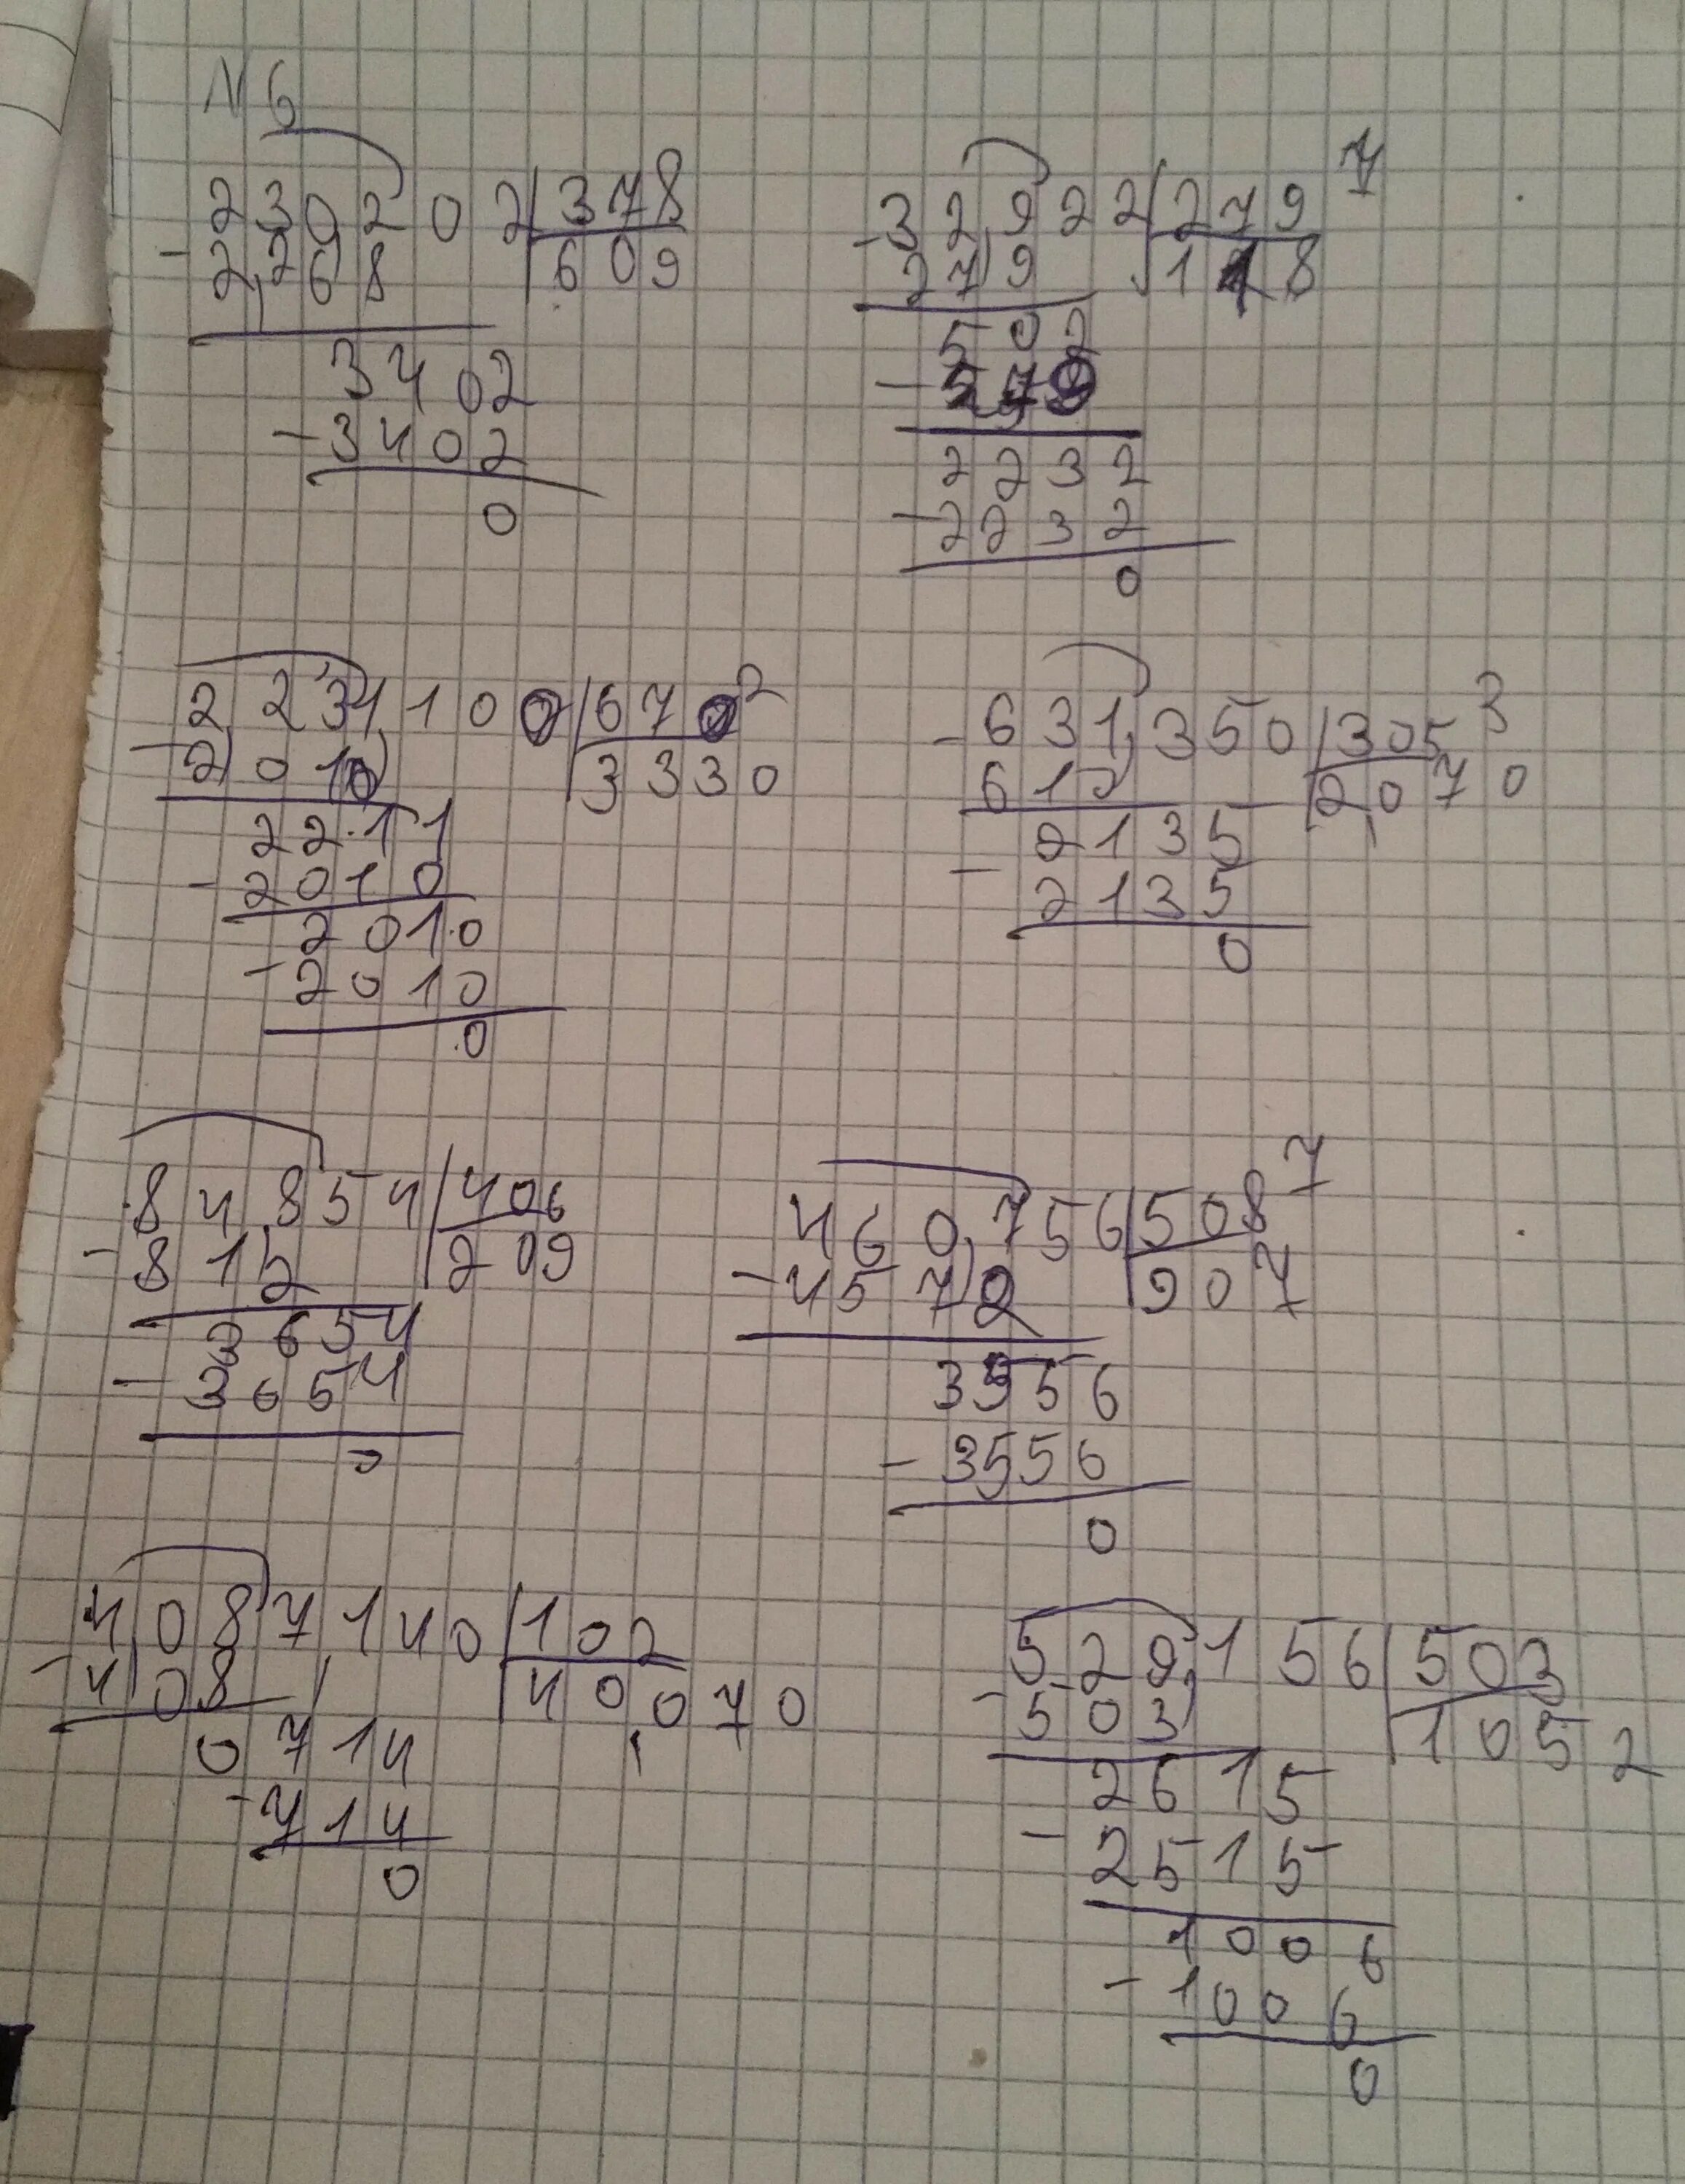 № 6
230202 | 378
- 2268 | 609
3402
- 3402
0
32922 | 279 7
- 279 | 118
502
-
2232
- 2232
0
2234100 | 670 2
- 2010 | 3330
2211
- 2010
2010
- 2010
0
- 631350 | 305 3
610 | 2070
2135
- 2135
0
84854 | 406
- 812 | 209
3654
- 3654
0
460756 | 508 7
- 4572 | 907
3556
- 3556
0
4087140 | 102
- 408 | 40070
0714
- 714
0
529156 | 503
- 503 | 1052
2615
- 2515
1006
- 1006
0